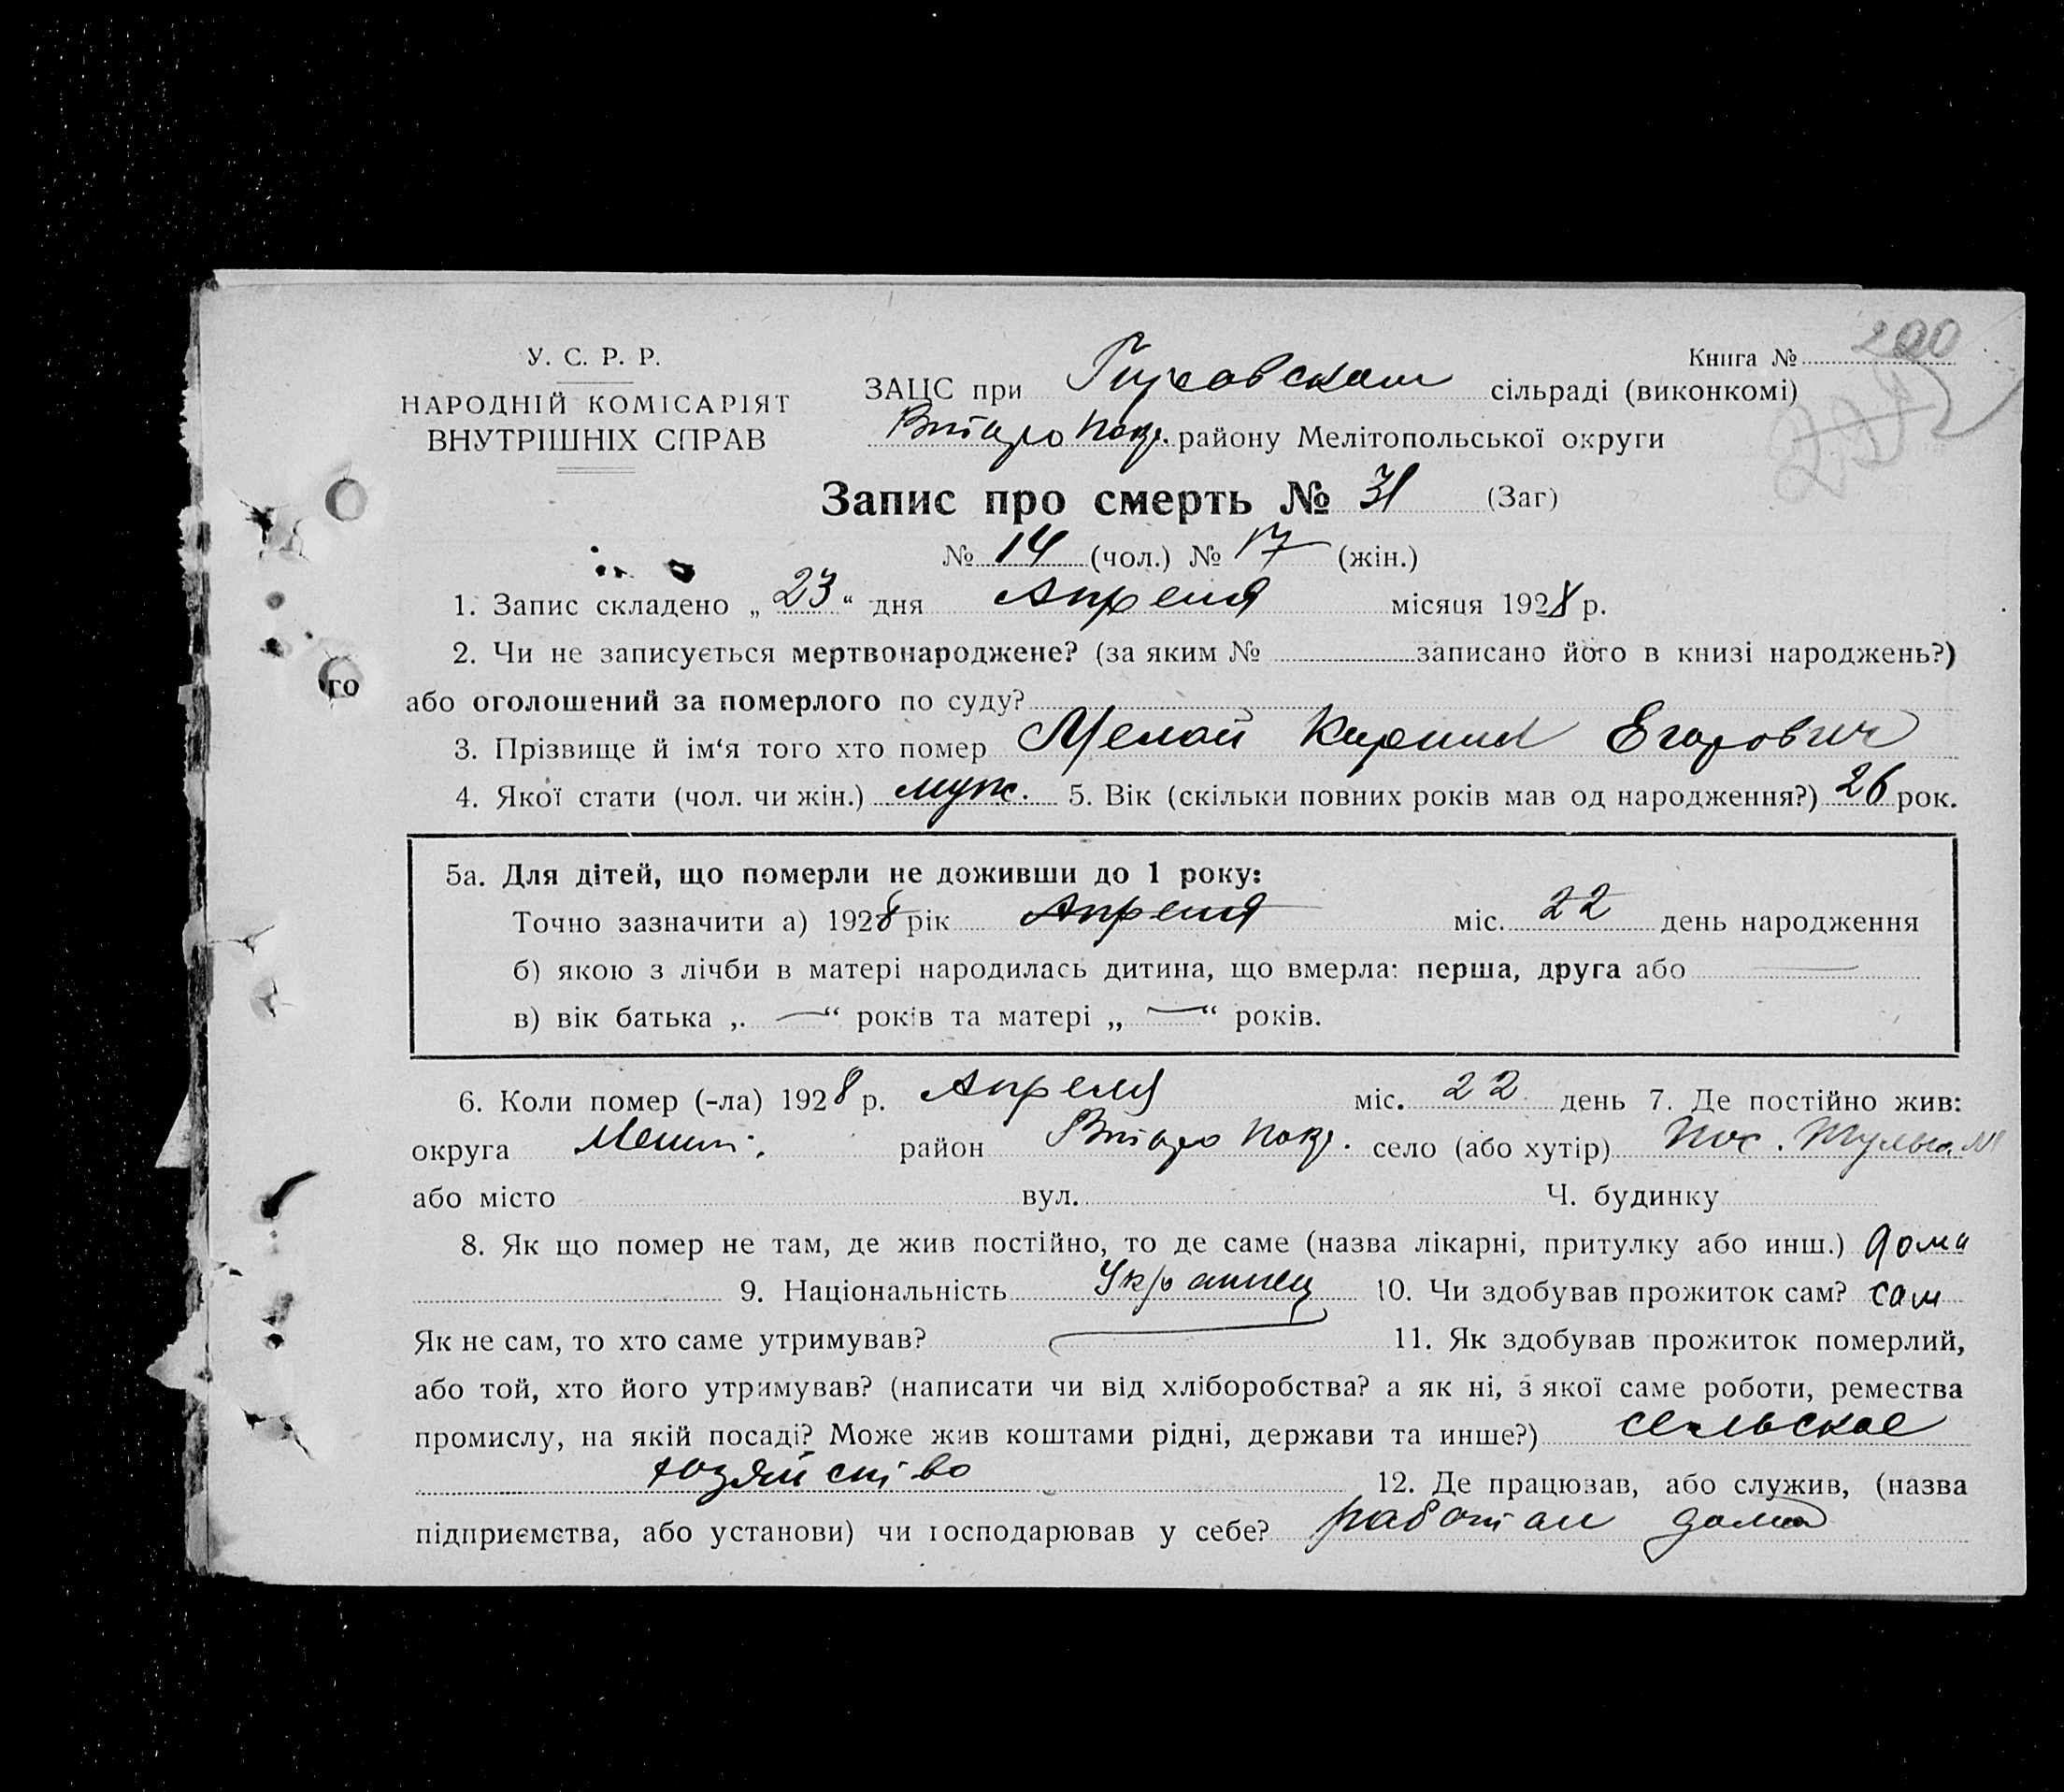 У. С. Р. Р.
НАРОДНІЙ КОМІСАРІЯТ
ВНУТРІШНІХ СПРАВ
Книга № 200
ЗАЦС при сільраді (виконкомі)
району Мелітопольської округи
Запис про смерть № 31 (Заг)
№ 14 (чол.) № 17 (жін.)
1. Запис складено „ 23 “ дня Апреля місяця 1928 р.
2. Чи не записується мертвонароджене? (за яким № записано його в книзі народжень?)
го
або оголошений за померлого по суду?
3. Прізвище й ім‘я того хто помер Егорович
4. Якої стати (чол. чи жін.) муж. 5. Вік (скільки повних років мав од народження?) 26 рок.
5а. Для дітей, що померли не доживши до 1 року:
Точно зазначити а) 1928 рік Апреля міс. 22 день народження
б) якою з лічби в матері народилась дитина, що вмерла: перша, друга або —
в) вік батька „ — “ років та матері „ — “ років.
6. Коли помер (-ла) 1928 р. Апреля міс. 22 день 7. Де постійно жив:
округа район село (або хутір)
або місто вул. Ч. будинку
8. Як що помер не там, де жив постійно, то де саме (назва лікарні, притулку або инш.) дома
9. Національність Украинец 10. Чи здобував прожиток сам? сам
Як не сам, то хто саме утримував? — 11. Як здобував прожиток померлий,
або той, хто його утримував? (написати чи від хліборобства? а як ні, з якої саме роботи, ремества
промислу, на якій посаді? Може жив коштами рідні, держави та инше?) сельское
хозяйство 12. Де працював, або служив, (назва
підприємства, або установи) чи господарював у себе? работал дома